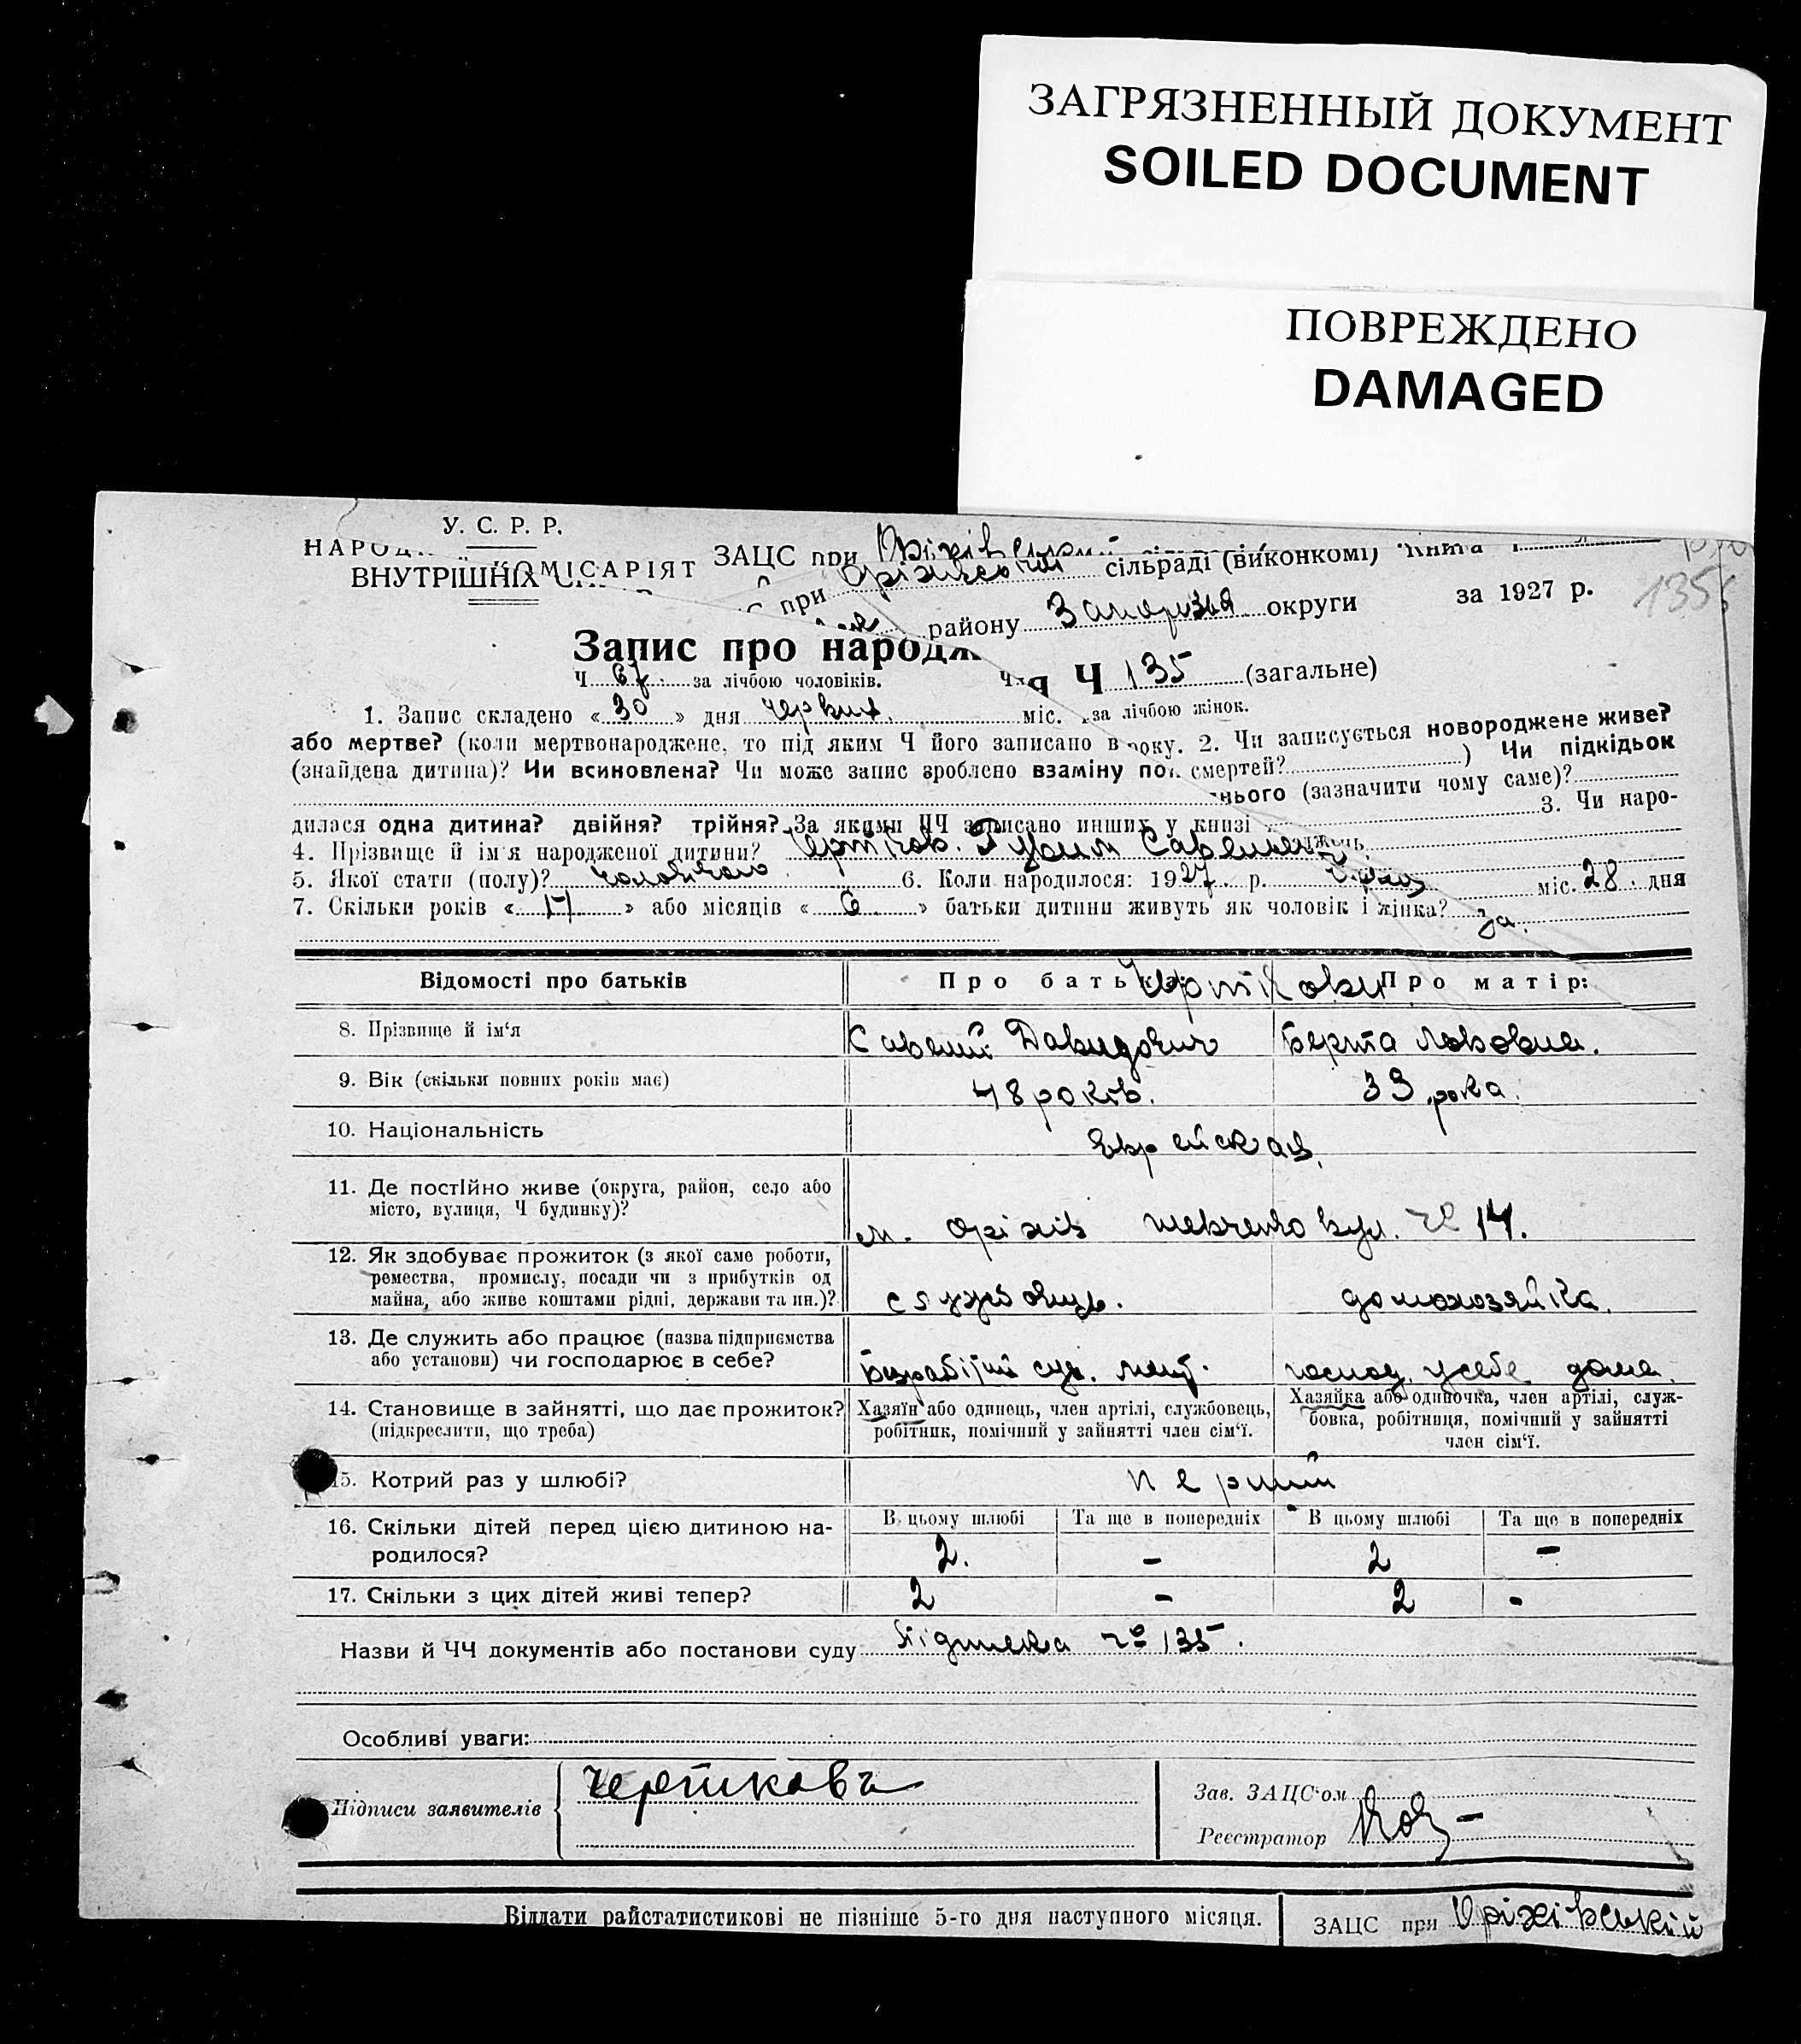 ЗАГРЯЗНЕННЫЙ ДОКУМЕНТ
SOILED DOCUMENT
ПОВРЕЖДЕНО
DAMAGED
У. С. Р. Р.
ЗАЦС при Оріхівський сільраді (виконкомі) Книга
ВНУТРІШНІХ
при району Запоріжжя округи за 1927 р. 1355
Запис про народж Ч 135 (загальне)
Ч 67 за лічбою чоловіків. за лічбою жінок.
1. Запис складено « 30 » дня червня міс. року. 2. Чи записується новороджене живе?
або мертве? (коли мертвонароджене, то під яким Ч його записано в смертей? ) Чи підкідьок
(знайдена дитина)? Чи всиновлена? Чи може запис зроблено взаміну нього (зазначити чому саме)?
3. Чи наро-
дилася одна дитина? двійня? трійня? За якими ЧЧ записано инших у книзі
4. Прізвище й ім'я народженої дитини?
5. Якої стати (полу)? чоловічого 6. Коли народилося: 1927 р. міс. 28 дня
7. Скільки років « 17 » або місяців « 6 » батьки дитини живуть як чоловік і жінка?
Відомості про батьків Про батька: Про матір:
8. Прізвище й ім‘я Савелий Давидович Берта Львовна.
9. Вік (скільки повних років має) 48 років. 33 рока.
10. Національність Еврейская
11. Де постійно живе (округа, район, село або
місто, вулиця, Ч будинку)? м. Оріхів Шевченко вул. № 14.
12. Як здобуває прожиток (з якої саме роботи,
ремества, промислу, посади чи з прибутків од
майна, або живе коштами рідні, держави та ин.)? службовець. домохозяйка.
13. Де служить або працює (назва підприємства
або установи) чи господарює в себе? господ. у себе дома.
14. Становище в зайнятті, що дає прожиток?
(підкреслити, що треба)
Хазяїн або одинець, член артілі, службовець,
робітник, помічний у зайнятті член сім‘ї.
Хазяйка або одиночка, член артілі, служ-
бовка, робітниця, помічний у зайнятті
член сім‘ї.
15. Котрий раз у шлюбі? перший
16. Скільки дітей перед цією дитиною на-
родилося?
В цьому шлюбі Та ще в попередніх В цьому шлюбі Та ще в попередніх
2. – 2 –
17. Скільки з цих дітей живі тепер? 2 – 2 -
Назви й ЧЧ документів або постанови суду Підписка № 135.
Особливі уваги:
Підписи заявителів Чертковъ
Зав. ЗАЦС‘ом
Реєстратор
Віддати райстатистикові не пізніше 5-го дня наступного місяця. ЗАЦС при Оріхівській